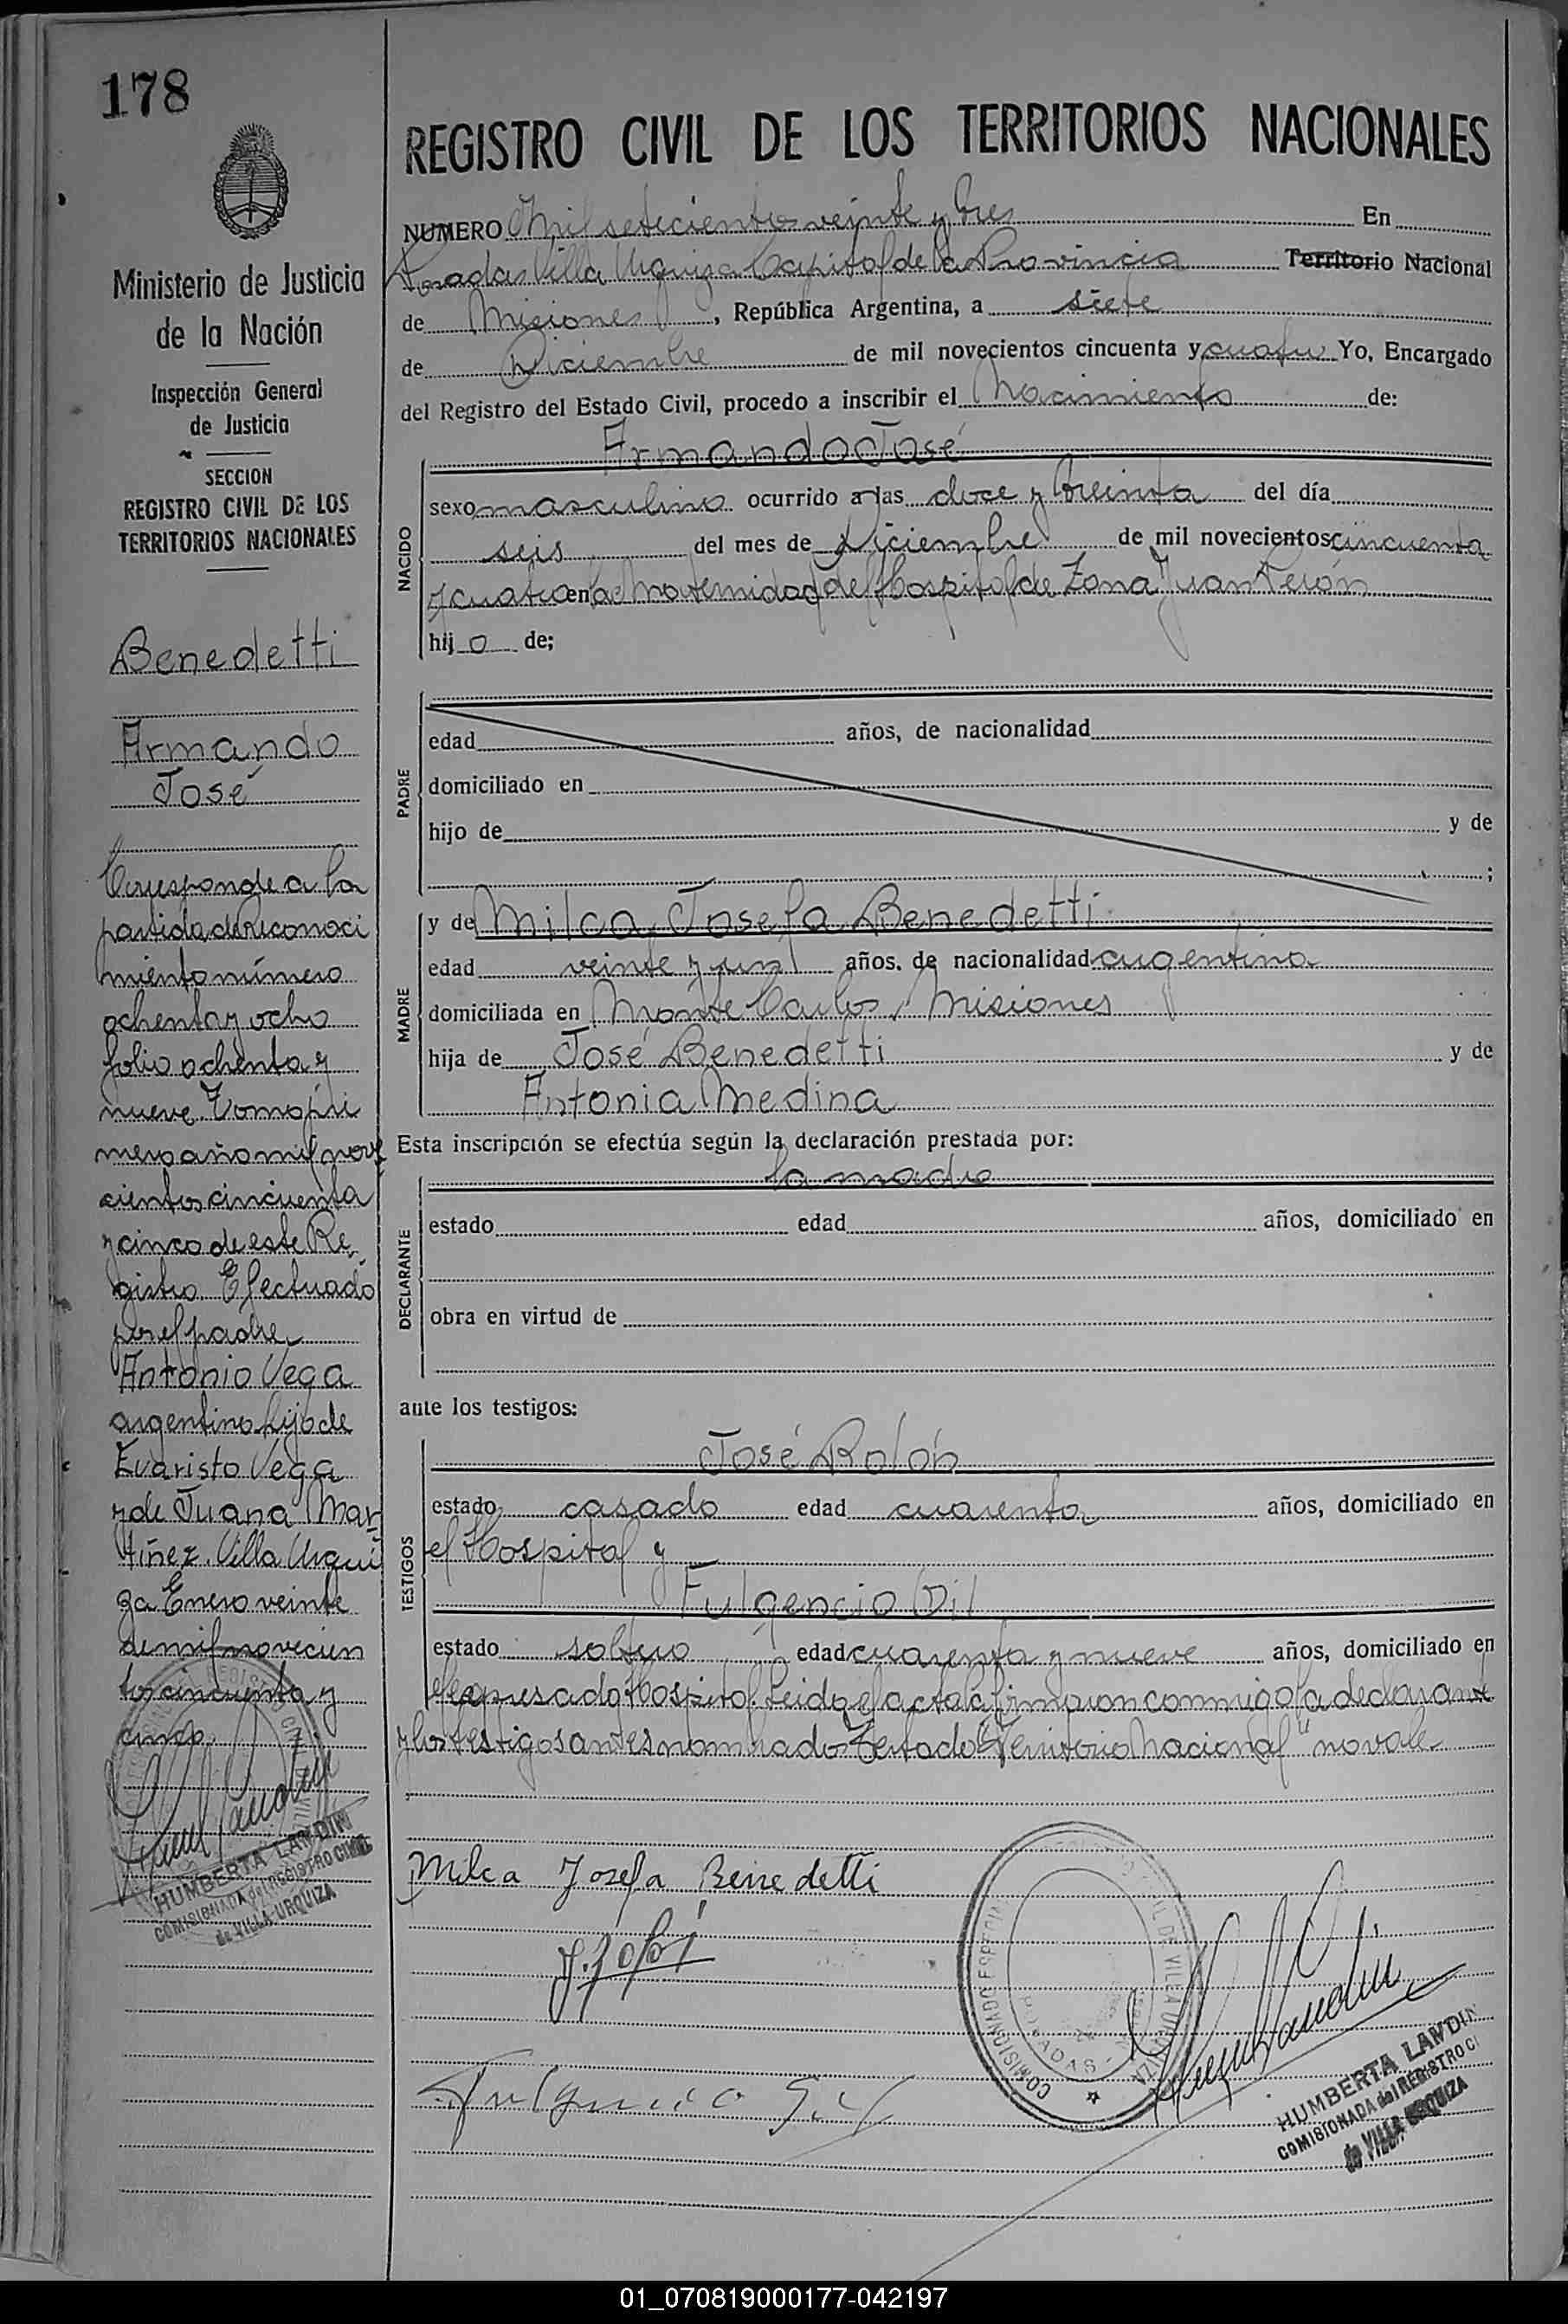 178
Ministerio de Justicia
de la Nación
Inspección General
de Justicia
SECCION
REGISTRO CIVIL DE LOS
TERRITORIOS NACIONALES
Benedetti
Armando
José
Corresponde a la
partida de Reconoci
miento número
ochenta y ocho
folio ochenta y
nueve Tomo pri
mero año mil nove
cientos cincuenta
y cinco de este Re
gistro. Efectuado
por el padre
Antonio Vega
argentino hijo de
Evaristo Vega
y de Juana Mar
tiñez. Villa Urqui
za Enero veinte
de mil novecien
tos cincuenta y
cinco.
HUMBERTA LANDIN
COMISIONADA del REGISTRO CIVIL
de VILLA URQUIZA
REGISTRO CIVIL DE LOS TERRITORIOS NACIONALES
NUMERO Mil setecientos veinte y tres En
Posadas Villa Urquiza Capital de la Provincia Territorio Nacional
de Misiones, República Argentina, a siete
de Diciembre de mil novecientos cincuenta y cuatro Yo, Encargado
del Registro del Estado Civil, procedo a inscribir el Nacimiento de:
NACIDO
Armando José
sexo masculino ocurrido a las doce y treinta del día
seis del mes de Diciembre de mil novecientos cincuenta
y cuatro en la Maternidad del Hospital de Zona Juan Perón
hijo de;
PADRE
edad años, de nacionalidad
domiciliado en
hijo de y de
;
MADRE
y de Milca Josefa Benedetti
edad veinte y un años. de nacionalidad argentina
domiciliada en Monte Carlos, Misiones
hija de José Benedetti y de
Antonia Medina
Esta inscripción se efectúa según la declaración prestada por:
DECLARANTE
la madre
estado edad años, domiciliado en
obra en virtud de
ante los testigos:
TESTIGOS
José Rolón
estado casado edad cuarenta años, domiciliado en
el Hospital y
Fulgencio Gil
estado soltero edad cuarenta y nueve años, domiciliado en
el expresado Hospital. Leida el acta la firmaron conmigo la declarante
y los testigos antes nombrados Testado "Territorio Nacional" no vale
Milca Josefa Benedetti
Fulgencio Gil
COMISIONADO ESPECIAL CIVIL DE VILLA URQUIZA
POSADAS
HUMBERTA LANDIN
COMISIONADA del REGISTRO CI
de VILLA URQUIZA
01_070819000177-042197